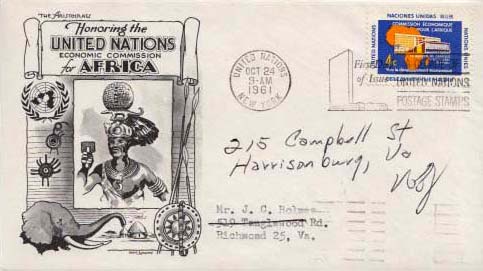 THE ARISTOCRATS
Honoring the
UNITED NATIONS
ECONOMIC COMMISSION
for AFRICA
UNITED NATIONS
OCT 24
9-AM
1961
NEW YORK
NACIONES UNIDAS
COMMISSION ÉCONOMIQUE
POUR L'AFRIQUE
4c
First
of Issue
UNITED NATIONS
POSTAGE STAMPS
215 Campbell St
Harrisonburg, Va
Mr. J. C. Holmes
519 Tanglewood Rd.
Richmond 25, Va.